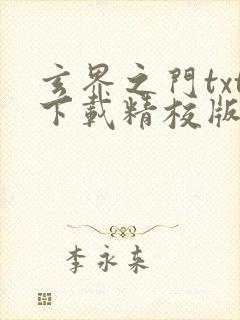 玄界之門txt
下載精校版
李永来